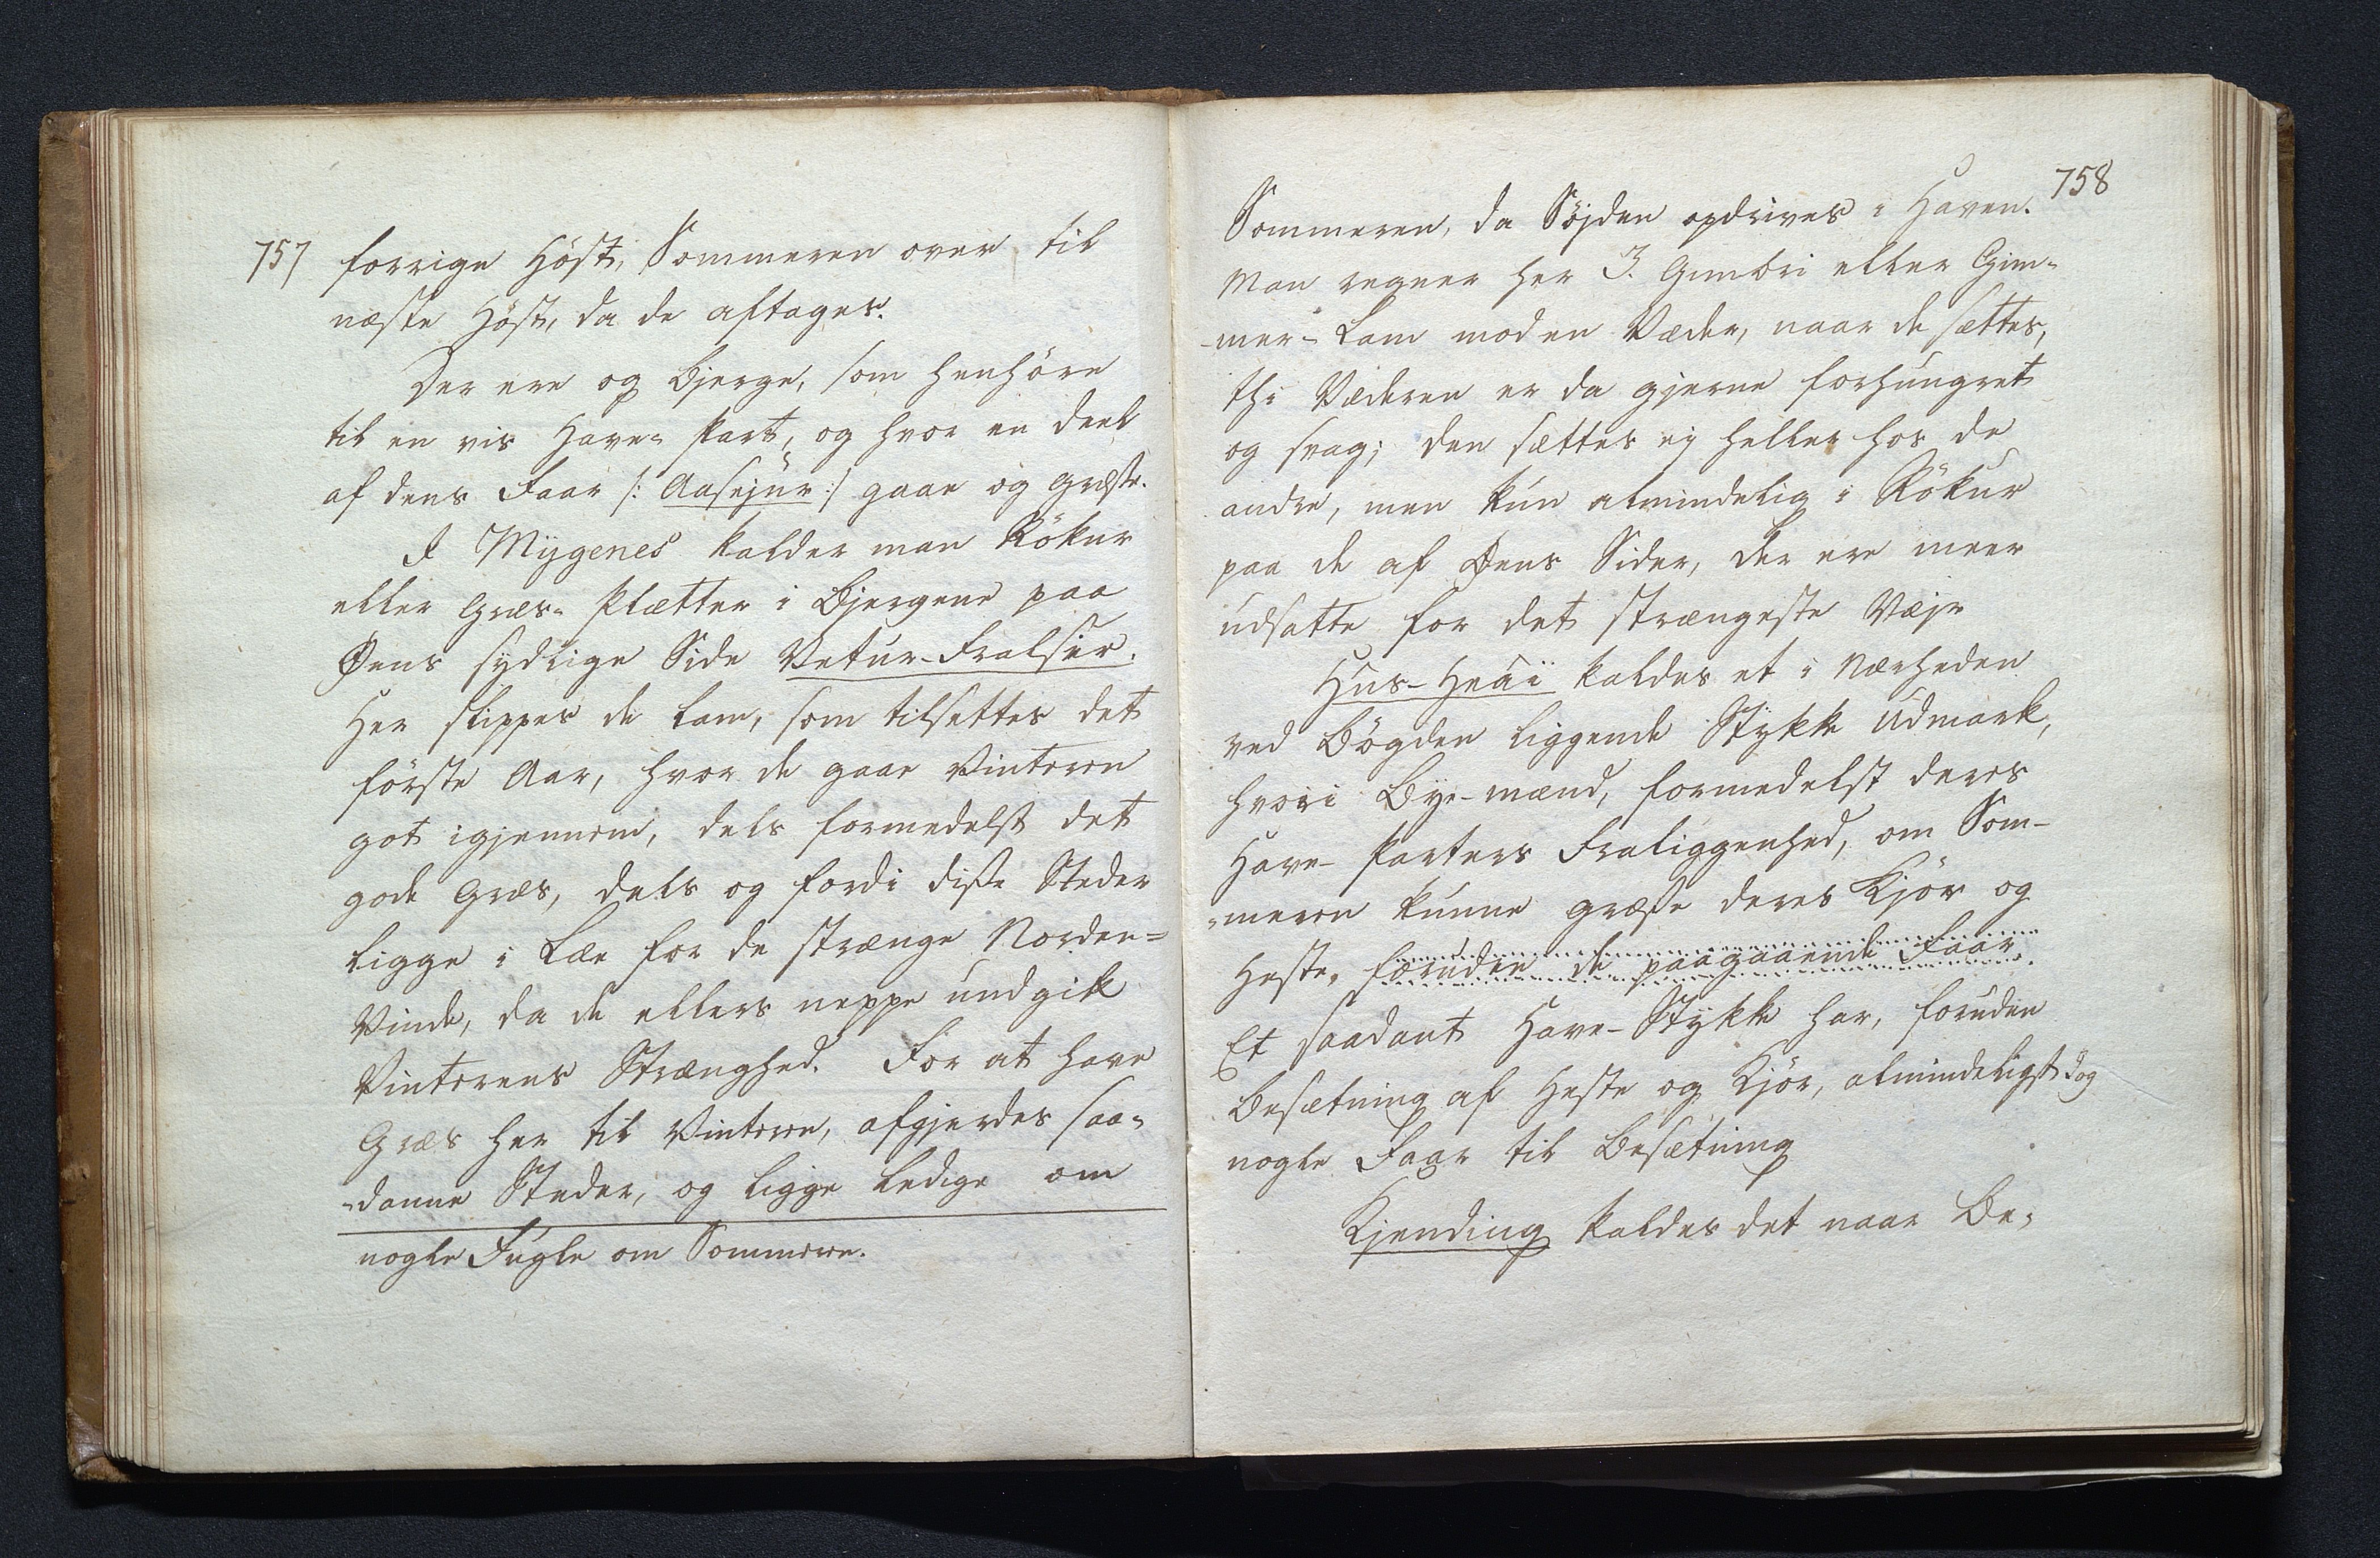 757
forrige Høst, Sommeren over til
næste Høst, da de aftages.
Der ere og Bjerge, som henhöre
til en vis Have= Part, og hvor en Deel
af dens Faar /: Aasejür :/ gaae og græsse.
I Mÿgenes kalder man Rökur
eller Græs= Pletter i Bjergene paa
Øens sydlige Side Vetur-Fralsir.
Her slippes de Lam, som tilsættes det
förste Aar, hvor de gaae Vinteren
got igjennem, dels formedelst det
gode Græs, dels og fordi disse Steder
ligge i Læe for de strænge Norden=
Vinde, da de ellers neppe undgik
Vinterens Strænghed. For at have
Græs her til Vinteren, afgjerdes saa=
-danne Steder, og ligge ledige om
nogle Fugle om Sommeren.
758
Sommeren, da Söjden opdrives i Haven.
Man regner her 3. Gimbri eller Gim=
-mer= Lam mod en Væder, naar de sættes,
thi Væderen er da gjerne forhungret
og svag; den sættes ej heller hos de
andre, men kun almindelig i Rökur
paa de af Øens Sider, der ere meer
udsatte for det strængeste Vejr
Hus-Heäi kaldes et i Nærheden
ved Bögden liggende Stykke Udmark,
hvori Bye-mænd, formedelst deres
Have- Parters Fraliggenhed, om Som-
-meren kunne græsse deres Kjör og
Heste, foruden de paagaaende Faar.
Et saadant Have-Stykke har, foruden
Besætning af Heste og Kjör, almindeligst dog
nogle Faar til Besætning
Kjending kaldes det naar Be=